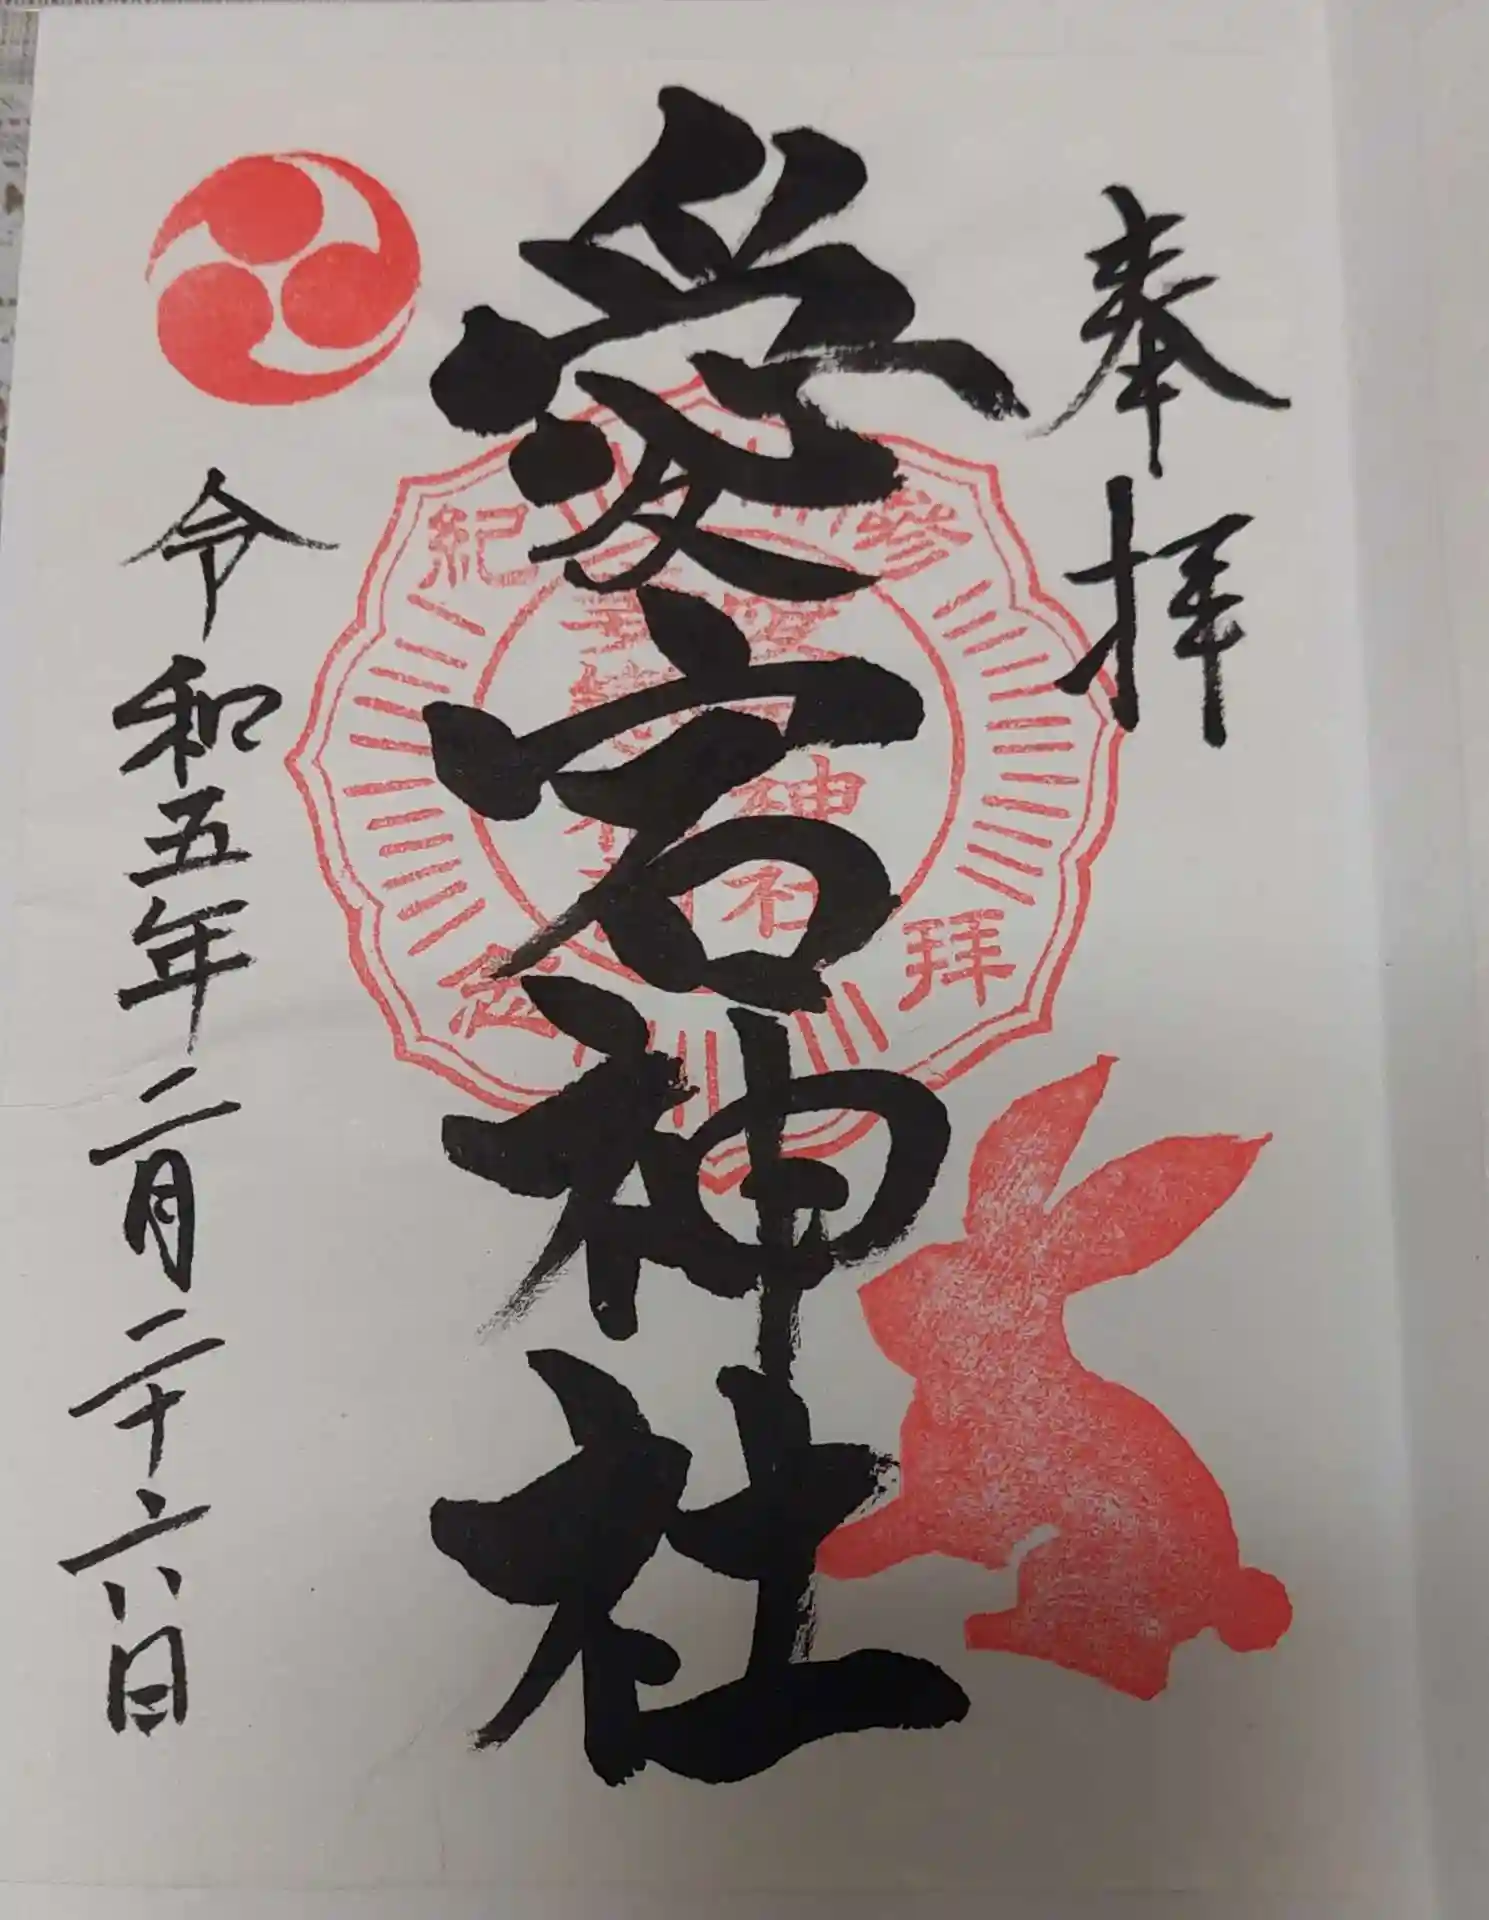 奉拝
愛宕神社
令和五年二月二十六日
参拝
紀念
神社